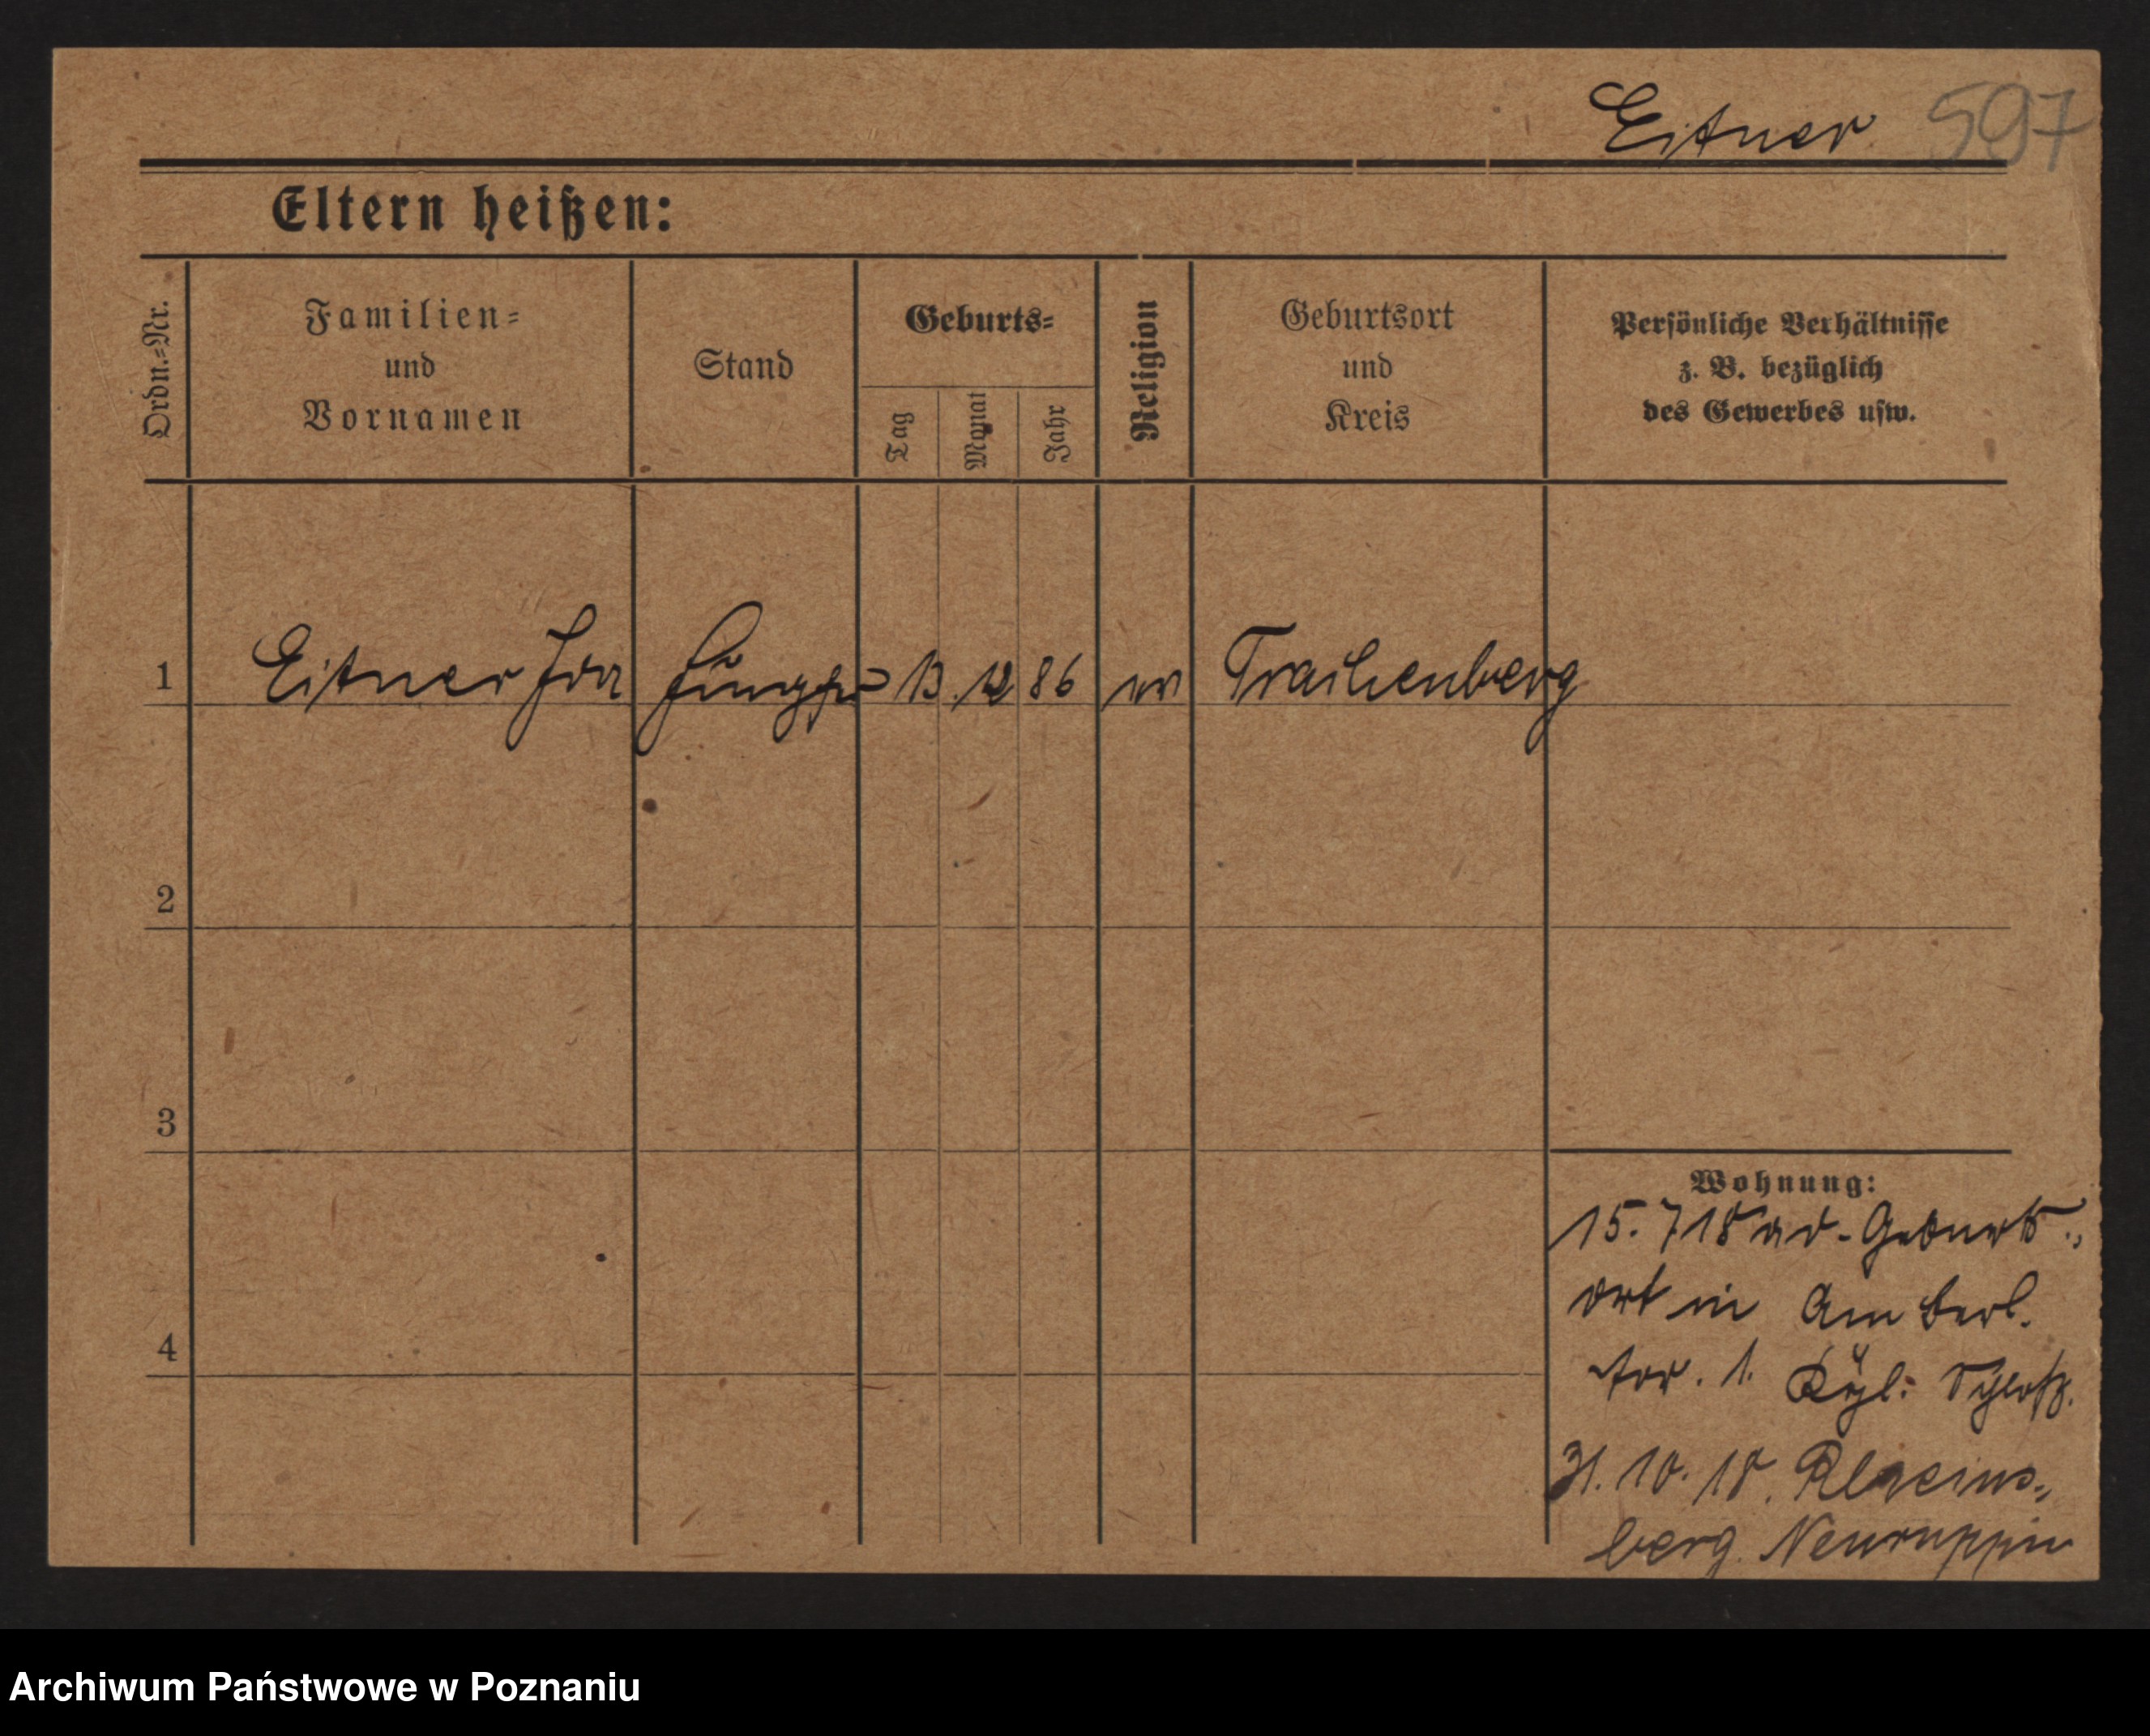 Eitner 597
Eltern heißen:
Ordn.=Nr.
Familien=
und
Vornamen
Stand
Geburts=
Tag
Monat
Jahr
Religion
Geburtsort
und
Kreis
Persönliche Verhältnisse
z. B. bezüglich
des Gewerbes usw.
1 Eitner Ida 13. 12 86 ev Trachenberg
2
3
4
Wohnung:
15. 7 18 Geburts=
ort in Am Berl.
Tor. 1. Kgl. Schloß.
31. 10. 18. Rheins=
berg. Neuruppin
Archiwum Państwowe w Poznaniu